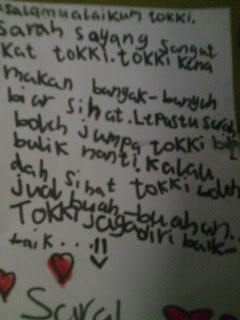 asalamualaikum tokki.
Sarah sayang sangat
kat tokki. tokki kena
makan banyak-banyak
biar sihat. Lepastu Sarah
boleh jumpa tokki
balik nanti. kalau
dah sihat tokki boleh
jual buah-buahan..
Tokki jaga diri baik-
baik...!!
Sarah